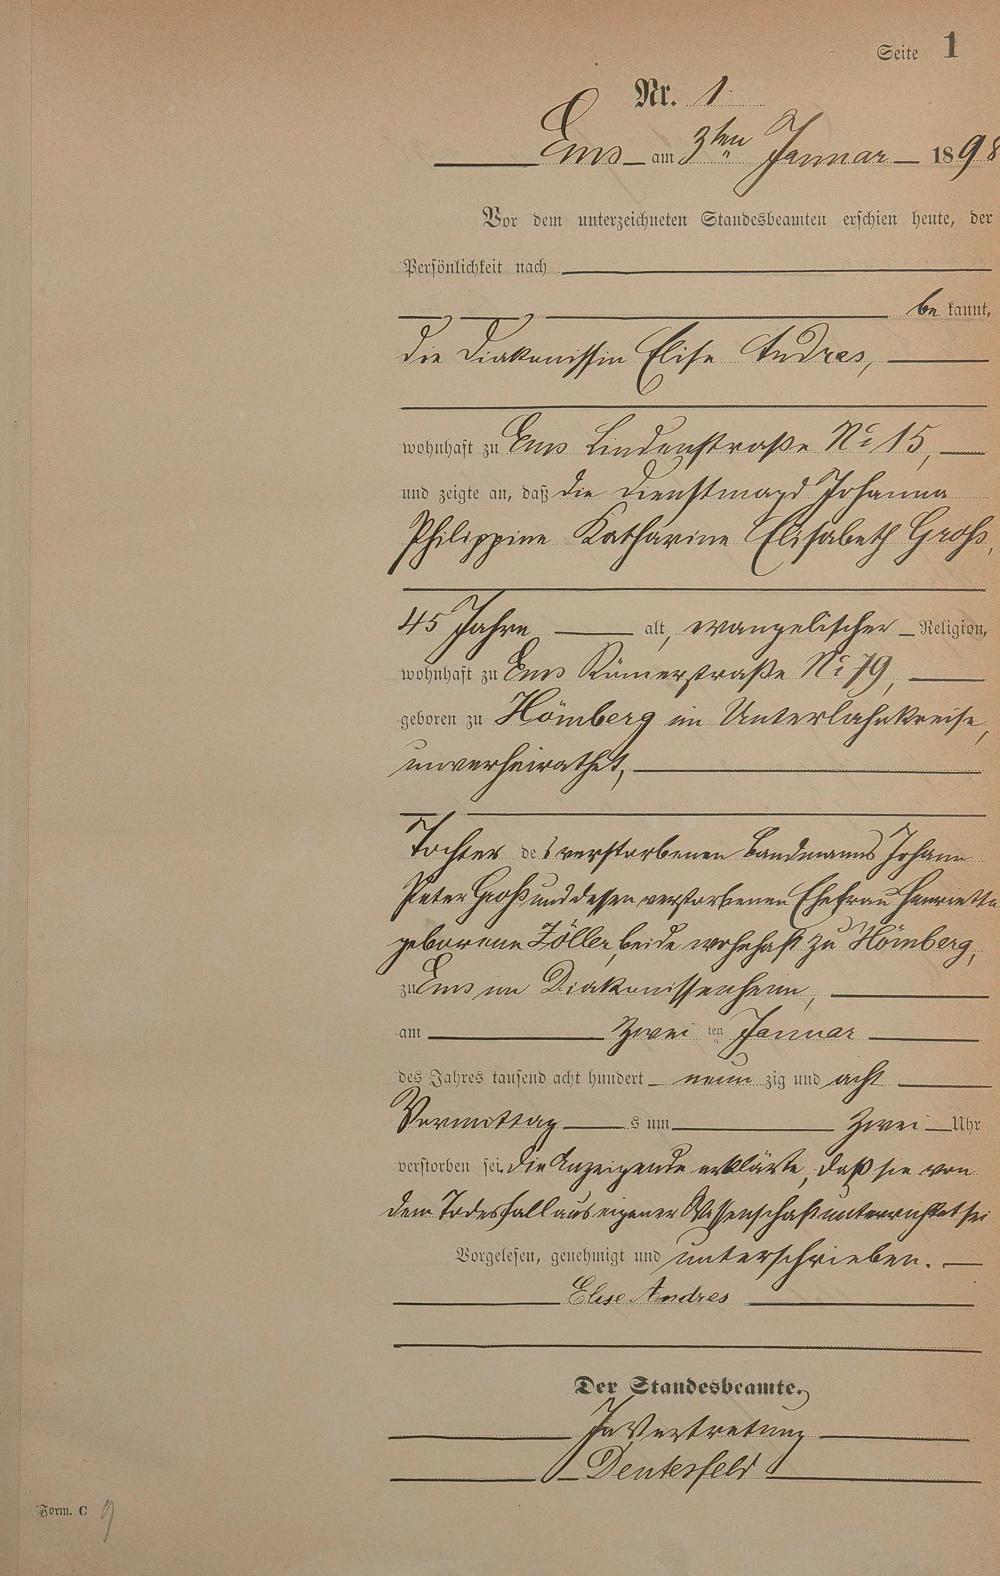 Seite 1
Nr. 1.
Ems am 3ten Januar 1898
Vor dem unterzeichneten Standesbeamten erschien heute, der
Persönlichkeit nach
bekannt,
die Diakonissin Elise Andres,
wohnhaft zu Ems Lindenstraße No 15,
und zeigte an, daß die Dienstmagd Johanna
Philippine Katharine Elisabeth Groß,
45 Jahre alt, evangelischer Religion,
wohnhaft zu Ems Römerstraße No 79,
geboren zu Hömberg im Unterlahnkreise,
unverheirathet,
Tochter des verstorbenen Landmanns Johann
Peter Groß und dessen verstorbenen Ehefrau Henriette
geborene Zöller, beide wohnhaft zu Hömberg,
zu Ems im Diakonissenheim,
am zwei ten Januar
des Jahres tausend acht hundert neun zig und acht
Vormittag s um zwei Uhr
verstorben sei. Die Anzeigende erklärte, daß sie von
dem Todesfall aus eigener Wissenschaft unterrichtet sei
Vorgelesen, genehmigt und unterschrieben.
Elise Andres
Der Standesbeamte.
In Vertretung
Form. C 9